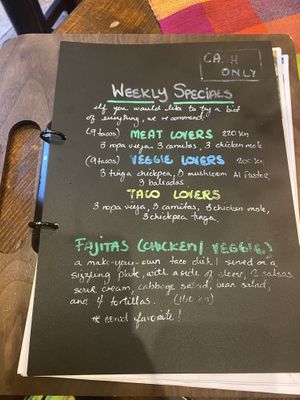 CASH
ONLY
WEEKLY SPECIALS
If you would like to try a bit
of everything, we recommend
(9 tacos) MEAT LOVERS 220 kn
3 ropa vieja, 3 carnitas, 3 chicken mole
(9 tacos) VEGGIE LOVERS 200 kn
3 tinga chickpea, 3 mushroom Al Pastor,
3 baleadas
TACO LOVERS
3 ropa vieja, 3 carnitas, 3 chicken mole,
3 chickpea tinga
FAJITAS (CHICKEN/ VEGGIE)
a make-your-own taco dish! served on a
sizzling plate, with a side of 2 salsas
sour cream, cabbage salad, bean salad,
and 4 tortillas. (160 kn)
favorite!